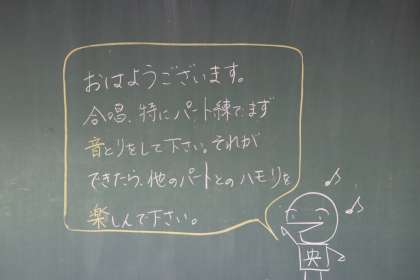 おはようございます。
合唱、特にパート練でまず
音とりをして下さい。それが
できたら、他のパートとのハモりを
楽しんで下さい。
央